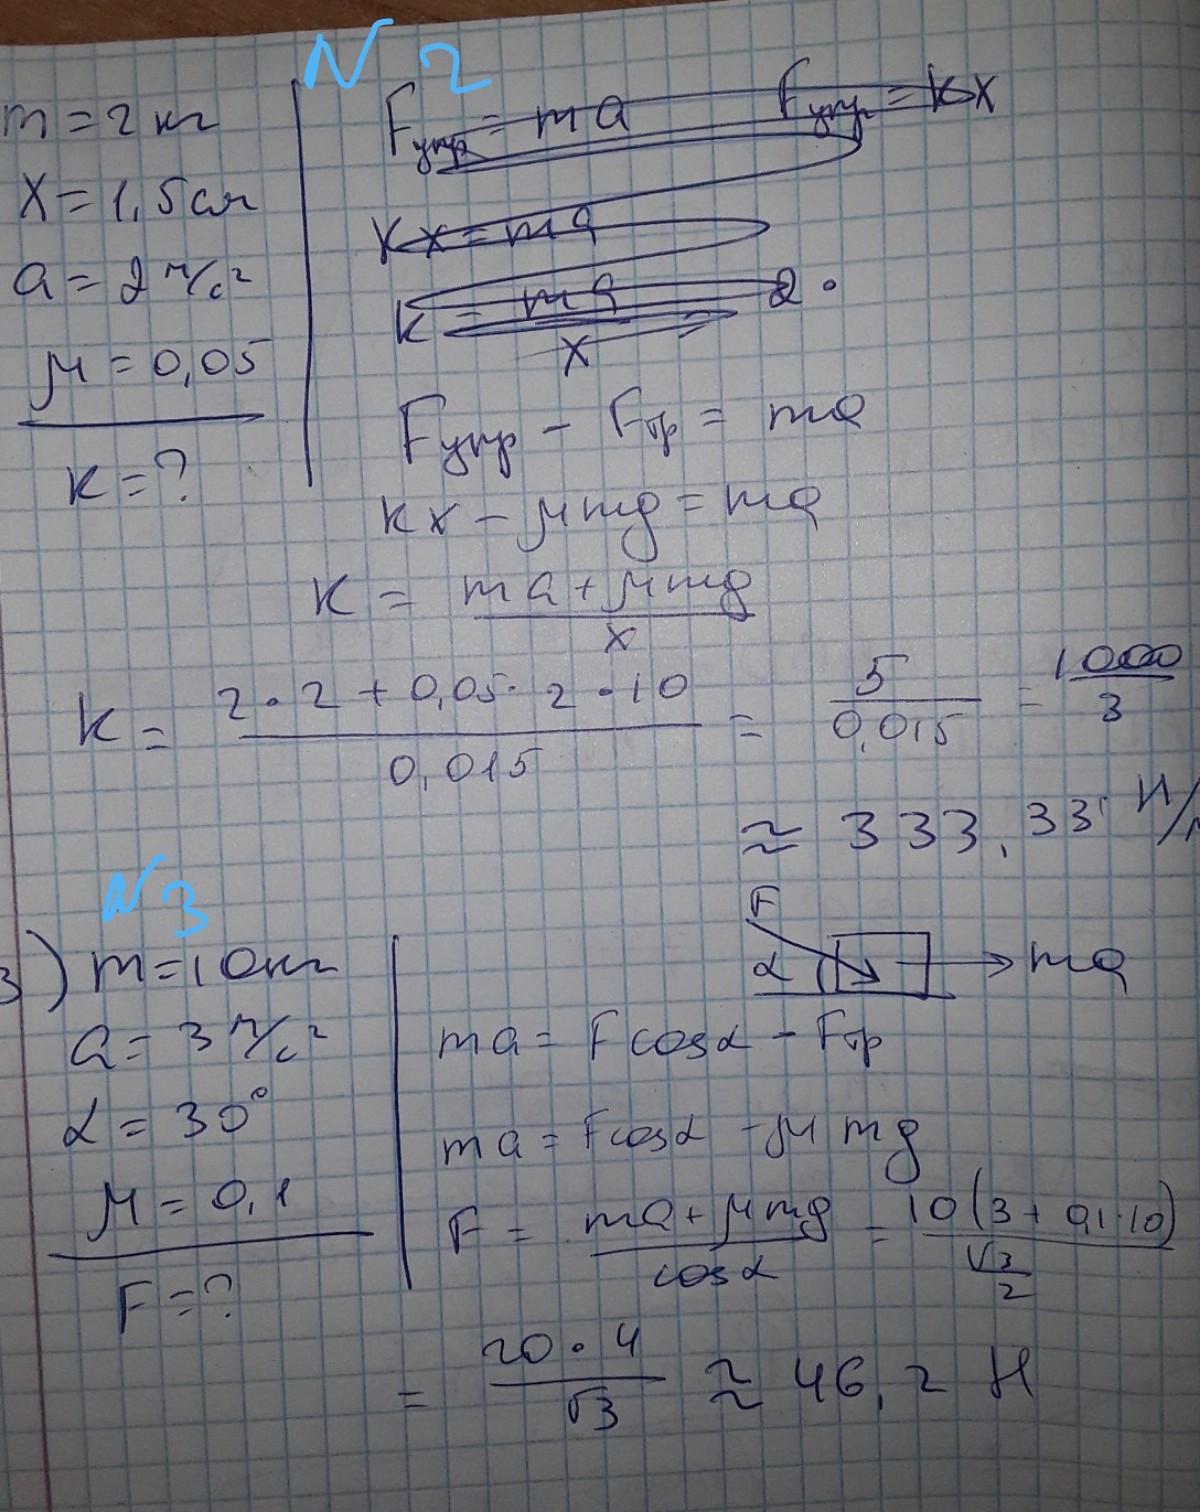 N 2
m = 2 кг
x = 1,5 см
a = 2 м/с²
μ = 0,05
k = ?
Fупр = ma Fупр = kx
kx = ma
k = ma / x 2 ·
Fупр - Fтр = ma
kx - μmg = ma
k = (ma + μmg) / x
k = (2 · 2 + 0,05 · 2 · 10) / 0,015 = 5 / 0,015 = 1000 / 3
≈ 333,33 Н/м
N 3
3) m = 10 кг
a = 3 м/с²
α = 30°
μ = 0,1
F = ?
F
α
ma
ma = Fcosα - Fтр
ma = Fcosα - μmg
F = (ma + μmg) / cosα = 10(3 + 0,1·10) / (√3 / 2)
= 20 · 4 / √3 ≈ 46,2 Н